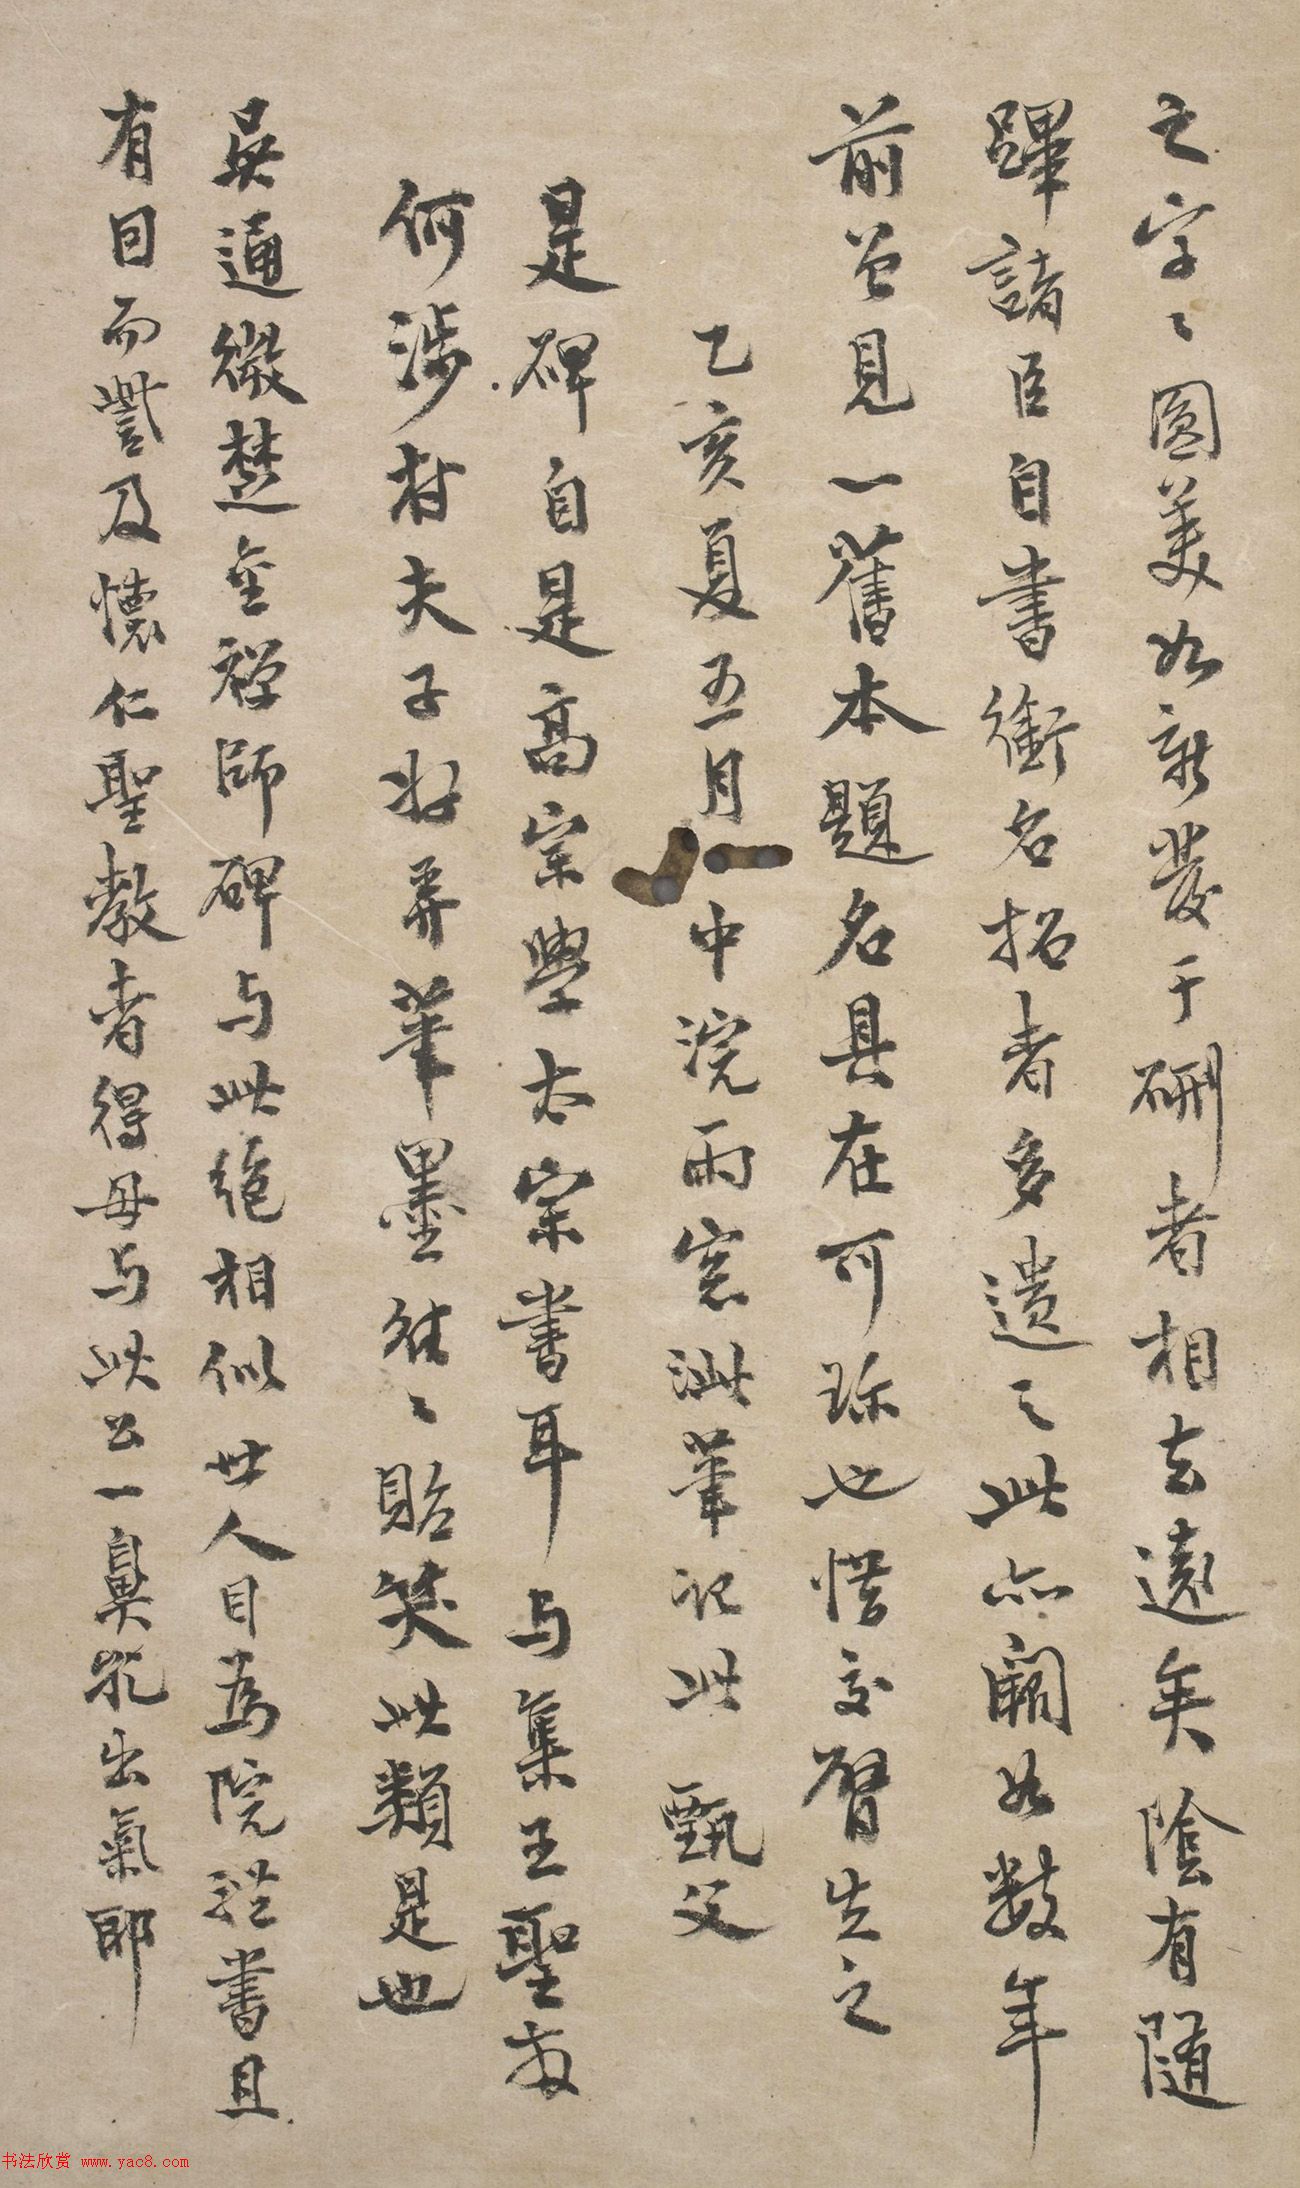 之字〻圓美如新發于硎者相去遠矣陰有隨
蹕諸臣自書銜名拓者多遺之此亦闕如數年
前曾見一舊本題名具在可珎也惜交臂失之
乙亥夏五月中浣雨窓泚筆記此 甄父
是碑自是高宗學太宗書耳与集王聖教
何涉村夫子好弄筆墨往〻貽笑此類是也
吳通微楚金禪師碑与此絕相似世人目為院體書且
有回而訾及懷仁聖教者得毋与此公一鼻孔出氣耶
书法欣赏 www.yac8.com